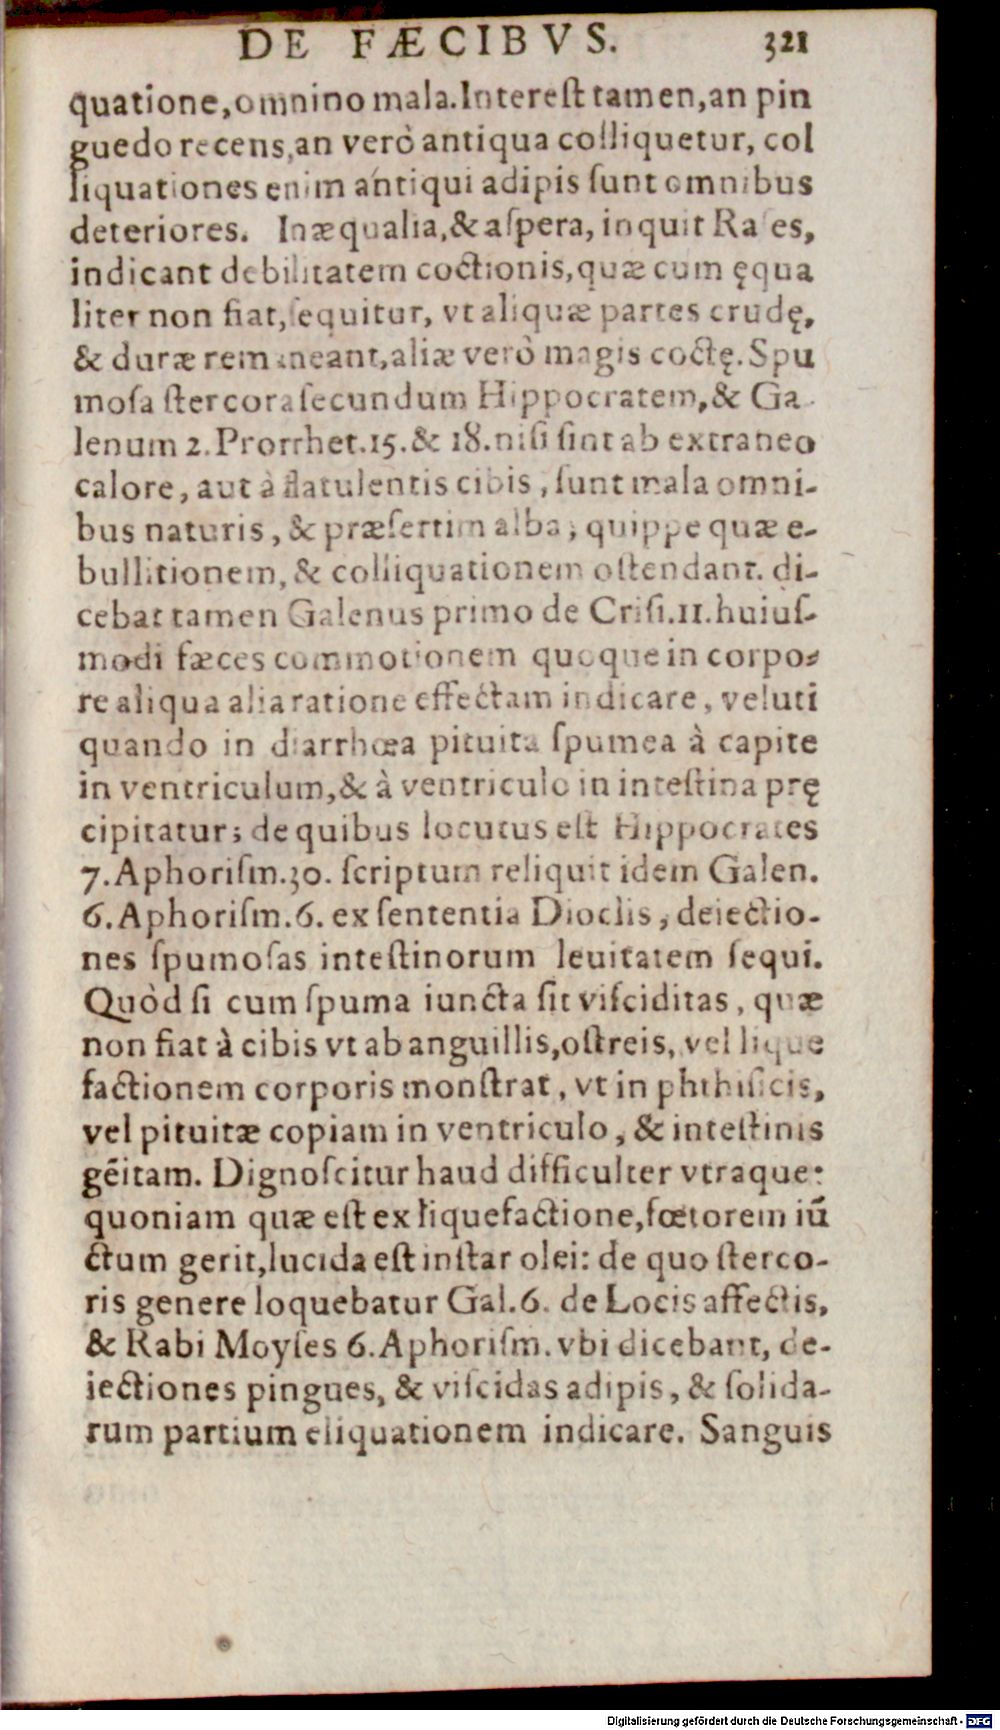 DE FÆCIBVS. 321
quatione, omnino mala. Intereſt tamen, an pin
guedo recens, an verò antiqua colliquetur, col
liquationes enim antiqui adipis ſunt omnibus
deteriores. Inæqualia, & aſpera, inquit Raſes,
indicant debilitatem coctionis, quæ cum ęqua
liter non fiat, ſequitur, vt aliquæ partes crudę,
& duræ remaneant, aliæ verò magis coctę. Spu
moſa ſtercora ſecundum Hippocratem, & Ga
lenum 2. Prorrhet. 15. & 18. niſi ſint ab extraneo
calore, aut à flatulentis cibis, ſunt mala omni-
bus naturis, & præſertim alba; quippe quæ e-
bullitionem, & colliquationem oſtendant. di-
cebat tamen Galenus primo de Criſi. 11. huiuſ-
modi fæces commotionem quoque in corpo-
re aliqua alia ratione effectam indicare, veluti
quando in diarrhœa pituita ſpumea à capite
in ventriculum, & à ventriculo in inteſtina prę
cipitatur; de quibus locutus eſt Hippocrates
7. Aphoriſm. 30. ſcriptum reliquit idem Galen.
6. Aphoriſm. 6. ex ſententia Dioclis, deiectio-
nes ſpumoſas inteſtinorum leuitatem ſequi.
Quòd ſi cum ſpuma iuncta ſit viſciditas, quæ
non fiat à cibis vt ab anguillis, oſtreis, vel lique
factionem corporis monſtrat, vt in phthiſicis,
vel pituitæ copiam in ventriculo, & inteſtinis
gēitam. Dignoſcitur haud difficulter vtraque:
quoniam quæ eſt ex liquefactione, fœtorem iū
ctum gerit, lucida eſt inſtar olei: de quo ſterco-
ris genere loquebatur Gal. 6. de Locis affectis,
& Rabi Moyſes 6. Aphoriſm. vbi dicebant, de-
iectiones pingues, & viſcidas adipis, & ſolida-
rum partium eliquationem indicare. Sanguis
Digitalisierung gefördert durch die Deutsche Forschungsgemeinschaft - DFG